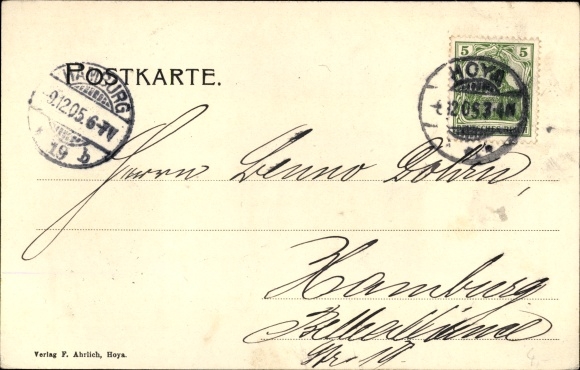 POSTKARTE.
HAMBURG
9.12.05.6-7V
19 b
5 5
HOYA
12.05.3-4N
Herrn Benno
Hamburg
Verlag F. Ahrlich, Hoya.